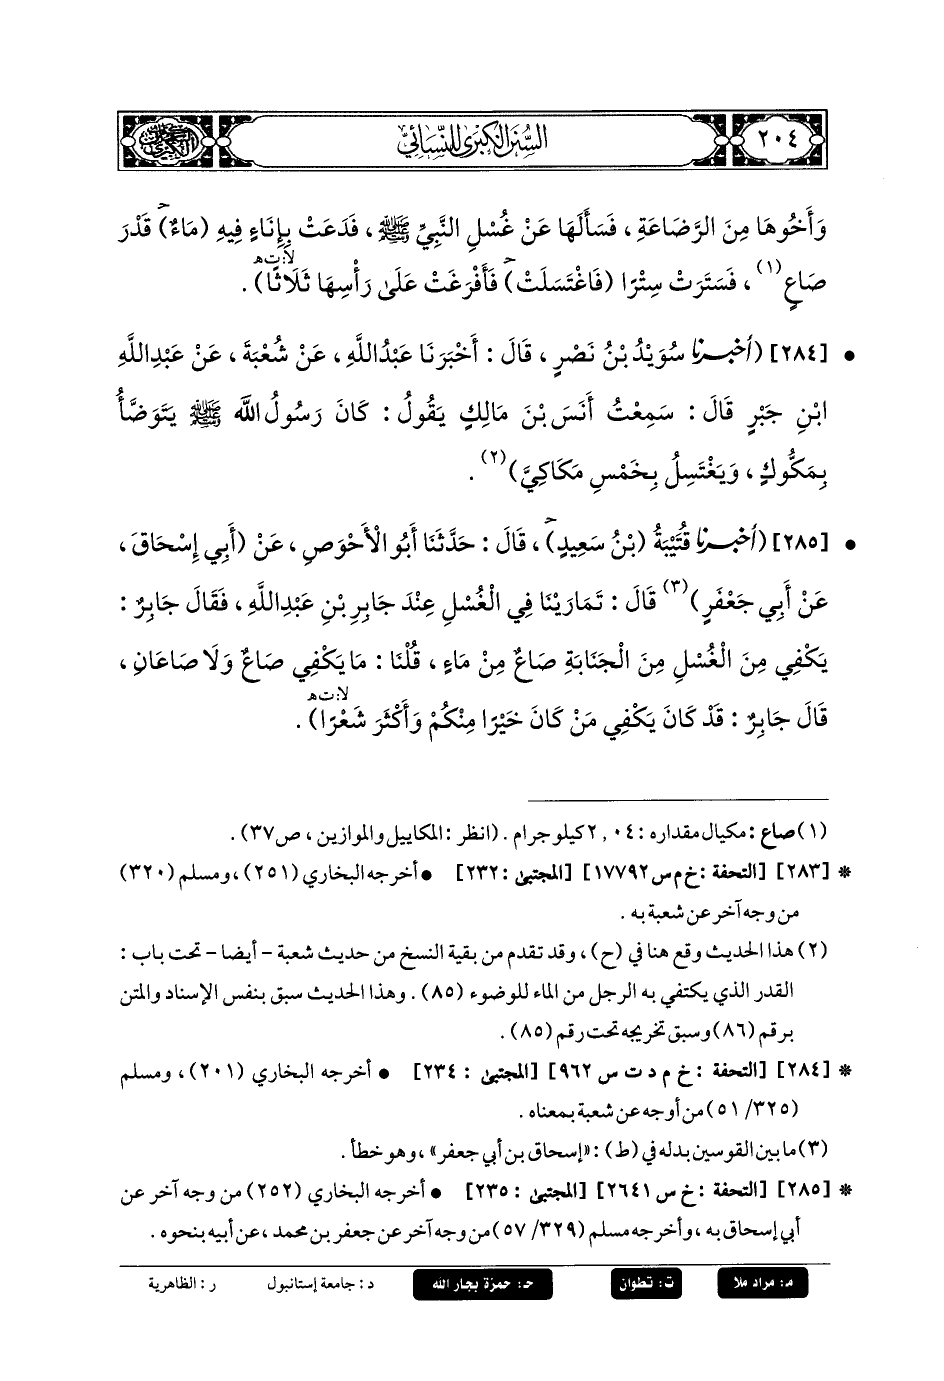 ٢٠٤
السُّنَنُ الكُبْرَىٰ لِلنَّسَائِيِّ
وَأَخُوهَا مِنَ الرَّضَاعَةِ ، فَسَأَلَهَا عَنْ غُسْلِ النَّبِيِّ ﷺ ، فَدَعَتْ بِإِنَاءٍ فِيهِ (مَاءٌ) قَدْرَ
صَاعٍ(١) ، فَسَتَرَتْ سِتْرًا (فَاغْتَسَلَتْ) فَأَفْرَغَتْ عَلَىٰ رَأْسِهَا ثَلَاثًا) .
• [٢٨٤] (أَخْبَرَنَا سُوَيْدُ بْنُ نَصْرٍ ، قَالَ : أَخْبَرَنَا عَبْدُاللَّهِ ، عَنْ شُعْبَةَ ، عَنْ عَبْدِاللَّهِ
ابْنِ جَبْرٍ قَالَ : سَمِعْتُ أَنَسَ بْنَ مَالِكٍ يَقُولُ : كَانَ رَسُولُ اللَّه ﷺ يَتَوَضَّأُ
بِمَكُّوكٍ ، وَيَغْتَسِلُ بِخَمْسِ مَكَاكِيَّ)(٢) .
• [٢٨٥] (أَخْبَرَنَا قُتَيْبَةُ (بْنُ سَعِيدٍ) ، قَالَ : حَدَّثَنَا أَبُو الْأَحْوَصِ ، عَنْ (أَبِي إِسْحَاقَ ،
عَنْ أَبِي جَعْفَرٍ)(٣) قَالَ : تَمَارَيْنَا فِي الْغُسْلِ عِنْدَ جَابِرِ بْنِ عَبْدِاللَّهِ ، فَقَالَ جَابِرٌ :
يَكْفِي مِنَ الْغُسْلِ مِنَ الْجَنَابَةِ صَاعٌ مِنْ مَاءٍ ، قُلْنَا : مَا يَكْفِي صَاعٌ وَلَا صَاعَانِ ،
قَالَ جَابِرٌ : قَدْ كَانَ يَكْفِي مَنْ كَانَ خَيْرًا مِنْكُمْ وَأَكْثَرَ شَعْرًا) .
(١) صاع : مكيال مقداره : ٢,٠٤ كيلو جرام . (انظر : المكاييل والموازين ، ص٣٧) .
* [٢٨٣] [التحفة : خ م س ١٧٧٩٢] [المجتبى : ٢٣٢] • أخرجه البخاري (٢٥١) ، ومسلم (٣٢٠)
من وجه آخر عن شعبة به .
(٢) هذا الحديث وقع هنا في (ح) ، وقد تقدم من بقية النسخ من حديث شعبة - أيضا - تحت باب :
القدر الذي يكتفي به الرجل من الماء للوضوء (٨٥) . وهذا الحديث سبق بنفس الإسناد والمتن
برقم (٨٦) وسبق تخريجه تحت رقم (٨٥) .
* [٢٨٤] [التحفة : خ م د ت س ٩٦٢] [المجتبى : ٢٣٤] • أخرجه البخاري (٢٠١) ، ومسلم
(٣٢٥/ ٥١) من أوجه عن شعبة بمعناه .
(٣) ما بين القوسين بدله في (ط) : «إسحاق بن أبي جعفر» ، وهو خطأ .
* [٢٨٥] [التحفة : خ س ٢٦٤١] [المجتبى : ٢٣٥] • أخرجه البخاري (٢٥٢) من وجه آخر عن
أبي إسحاق به ، وأخرجه مسلم (٣٢٩/ ٥٧) من وجه آخر عن جعفر بن محمد ، عن أبيه بنحوه .
م: مراد ملا ت: تطوان ح: حمزة بجار الله د: جامعة إستانبول ر: الظاهرية